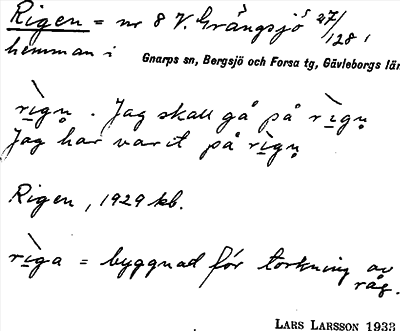 Rigen = nr 8 V. Grängsjö 5 27/128,
hemman i Gnarps sn, Bergsjö och Forsa tg, Gävleborgs län
rìgn̥. Jag skall gå på rìgn̥
Jag har varit på rìgn̥
Rigen, 1929 kb.
rìga = byggnad för torkning av
råg.
LARS LARSSON 1933